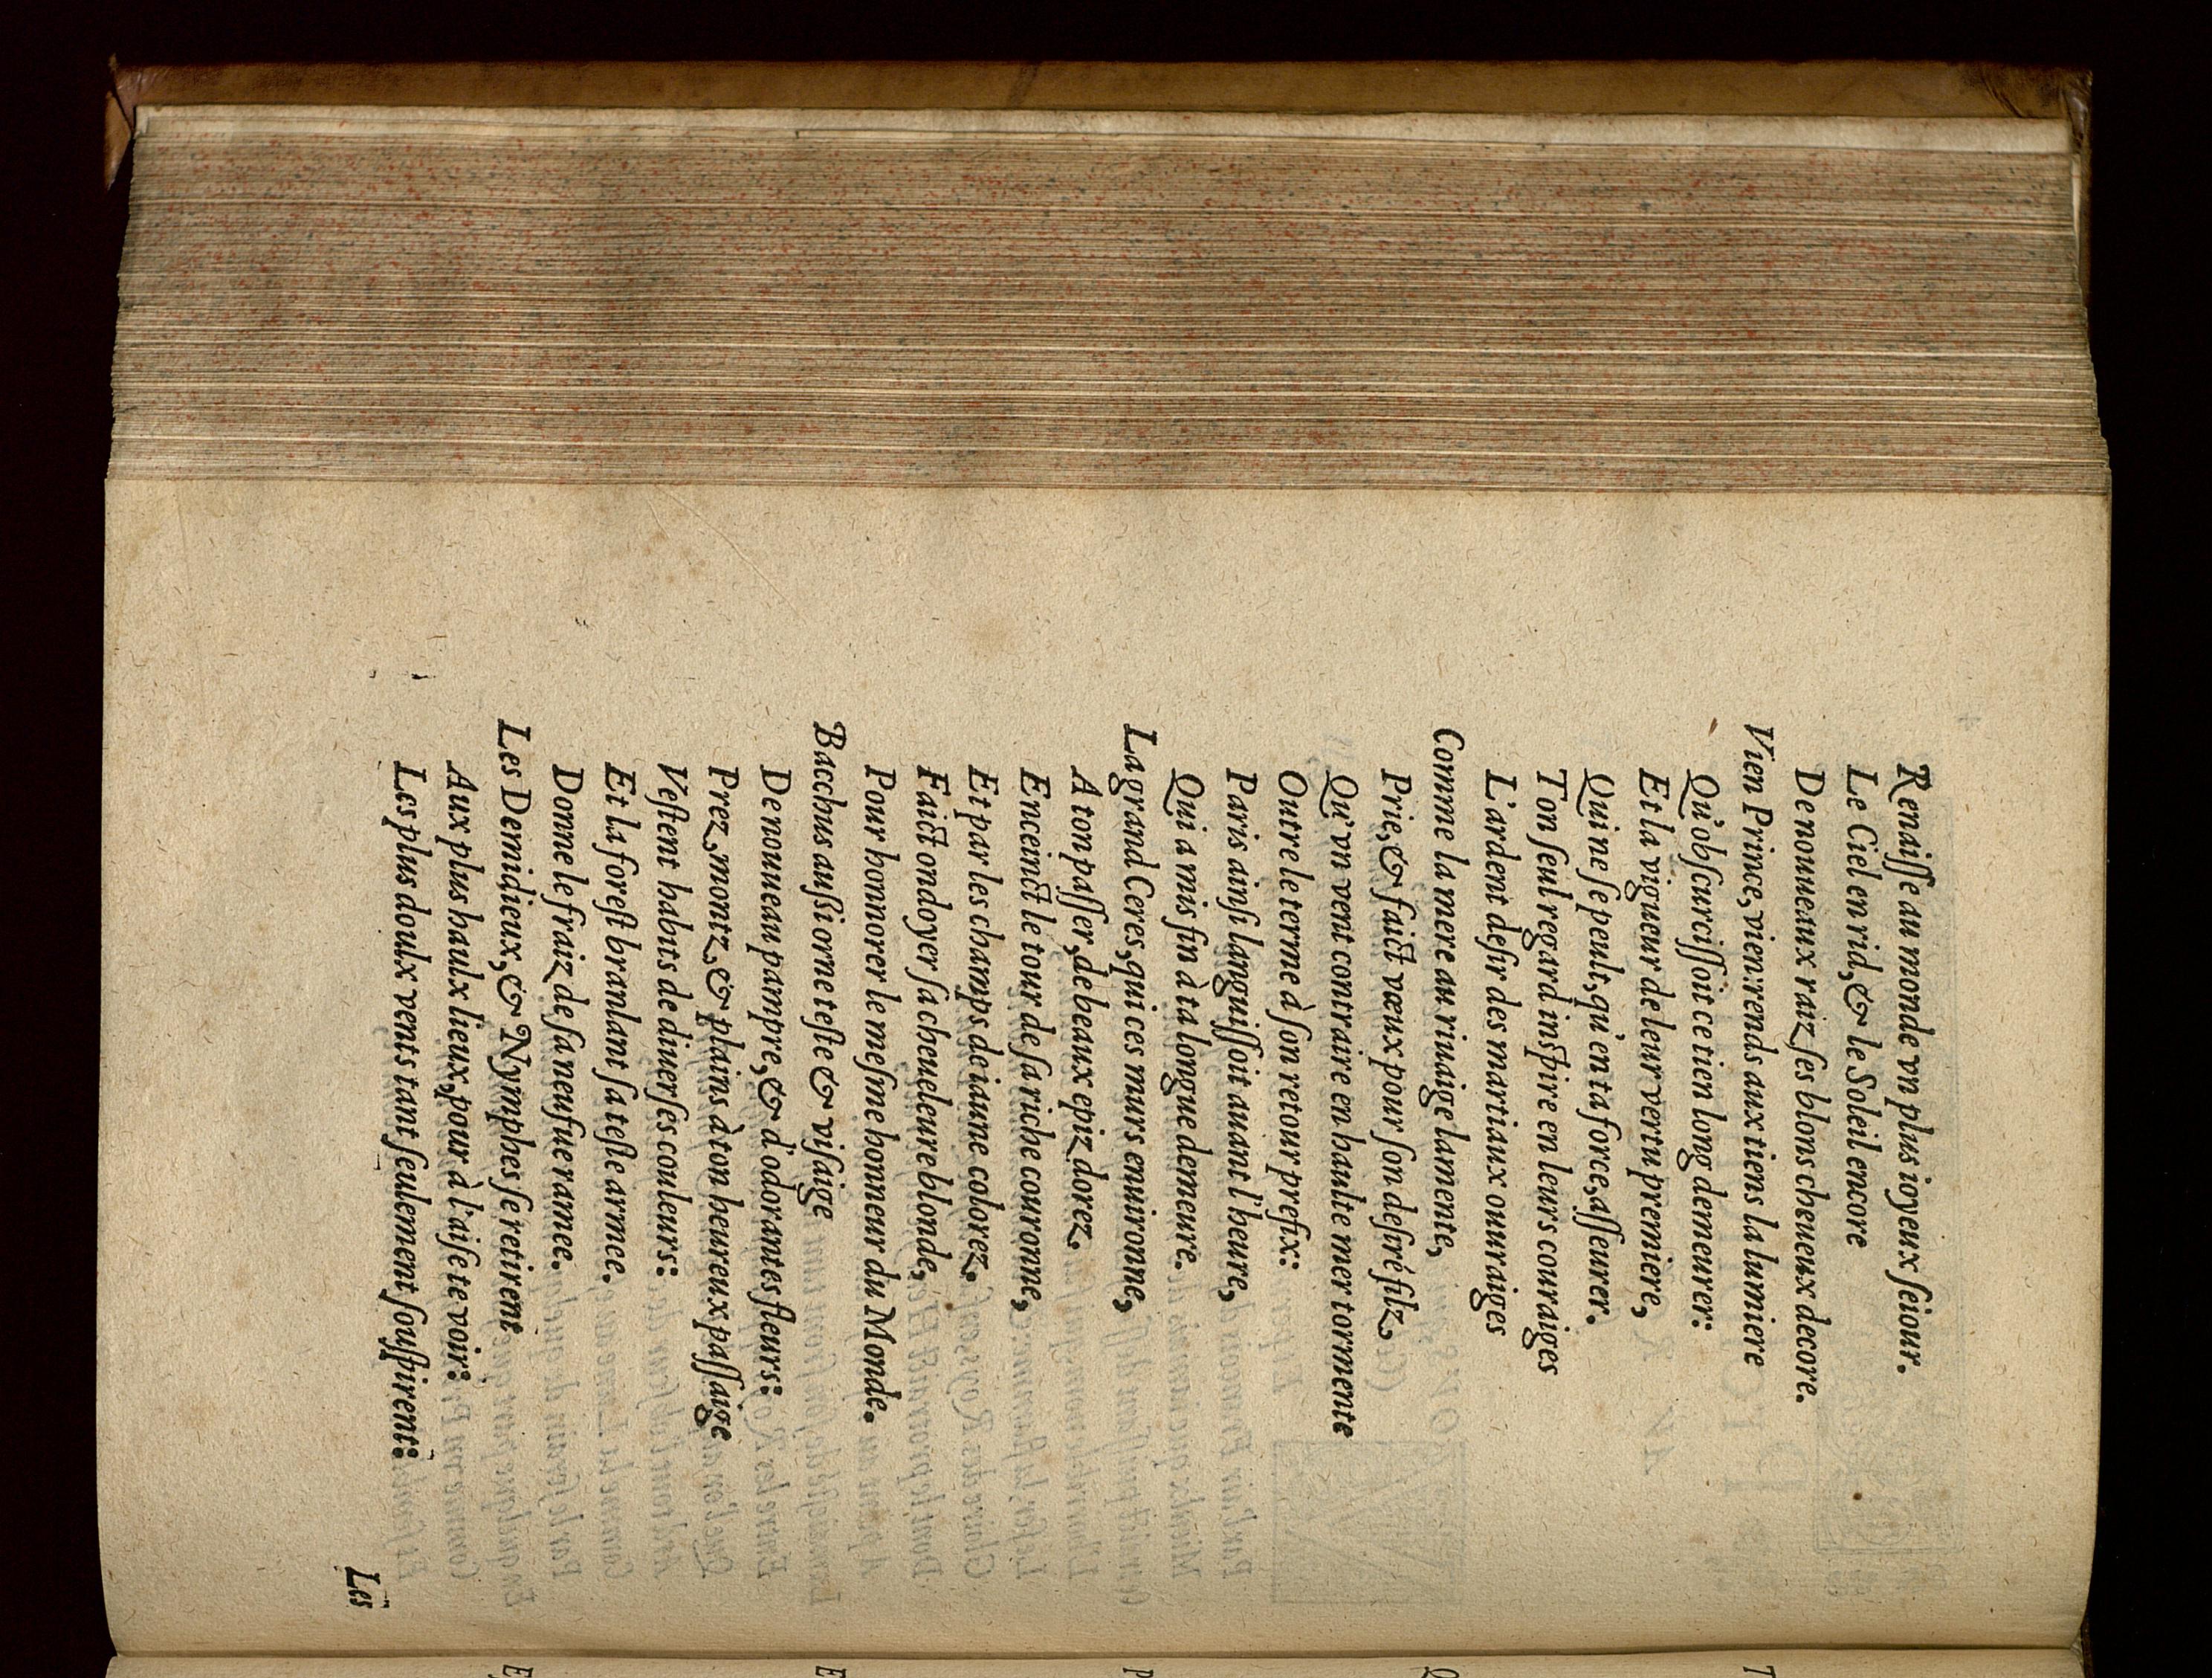 Renaiſſe au monde vn plus ioyeux ſeiour.
Le Ciel en rid, & le Soleil encore
De nouueaux raiz ſes blons cheueux decore.
Vien Prince, vien: rends aux tiens la lumiere
Qu'obſcurciſſoit ce tien long demeurer:
Et la vigueur de leur vertu premiere,
Qui ne ſe peult, qu'en ta force, aſſeurer.
Ton ſeul regard inſpire en leurs couraiges
L'ardent deſir des martiaux ouuraiges
Comme la mere au riuaige lamente,
Prie, & faict vœux pour ſon deſiré filz,
Qu'vn vent contraire en haulte mer tormente
Outre le terme à ſon retour prefix:
Paris ainſi languiſſoit auant l'heure,
Qui a mis fin à ta longue demeure.
La grand Ceres, qui ces murs enuironne,
A ton paſſer, de beaux epiz dorez.
Enceinct le tour de ſa riche couronne,
Et par les champs de iaune colorez.
Faict ondoyer ſa cheueleure blonde,
Pour honnorer le meſme honneur du Monde.
Bacchus auſsi orne teſte & viſaige
De nouueau pampre, & d'odorantes fleurs:
Prez, montz, & plains à ton heureux paſſaige
Veſtent habits de diuerſes couleurs:
Et la foreſt branlant ſa teſte armee.
Donne le fraiz de ſa neufue ramee.
Les Demidieux, & Nymphes ſe retirent
Aux plus haulx lieux, pour à l'aiſe te voir:
Les plus doulx vents tant ſeulement ſouſpirent:
Les